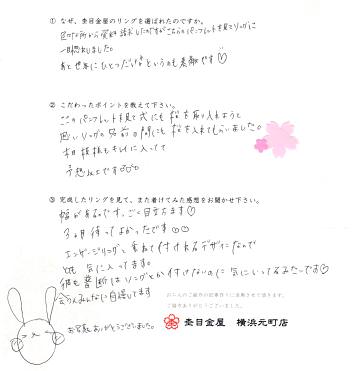 ① なぜ、杢目金屋のリングを選ばれたのですか。
色々な所から資料請求したのですがこちらのパンフレットを見てリングに
一目惚れしました。
あと世界にひとつだけ♡というのも素敵です♡
② こだわったポイントを教えて下さい。
ここのパンフレットを見て式にも桜を取り入れようと
思いリングの名前の間にも桜を入れてもらいました。
木目模様もキレイに入ってて
予想以上です
③ 完成したリングを見て、また着けてみた感想をお聞かせ下さい。
幅があるのです、ごく目立ちます♡
3ヶ月待ってよかったです
エンゲージリングと重ねて付けれるデザインなので
とても気に入ってます。
彼も普段はリングとか付けないのに気にいってるみたいです♡
会う人みんなに自慢してます
お写真ありがとうございました。
おふたりのご紹介の記事作りに活用させて頂きます。
ご協力ありがとうございました。
杢目金屋 横浜元町店